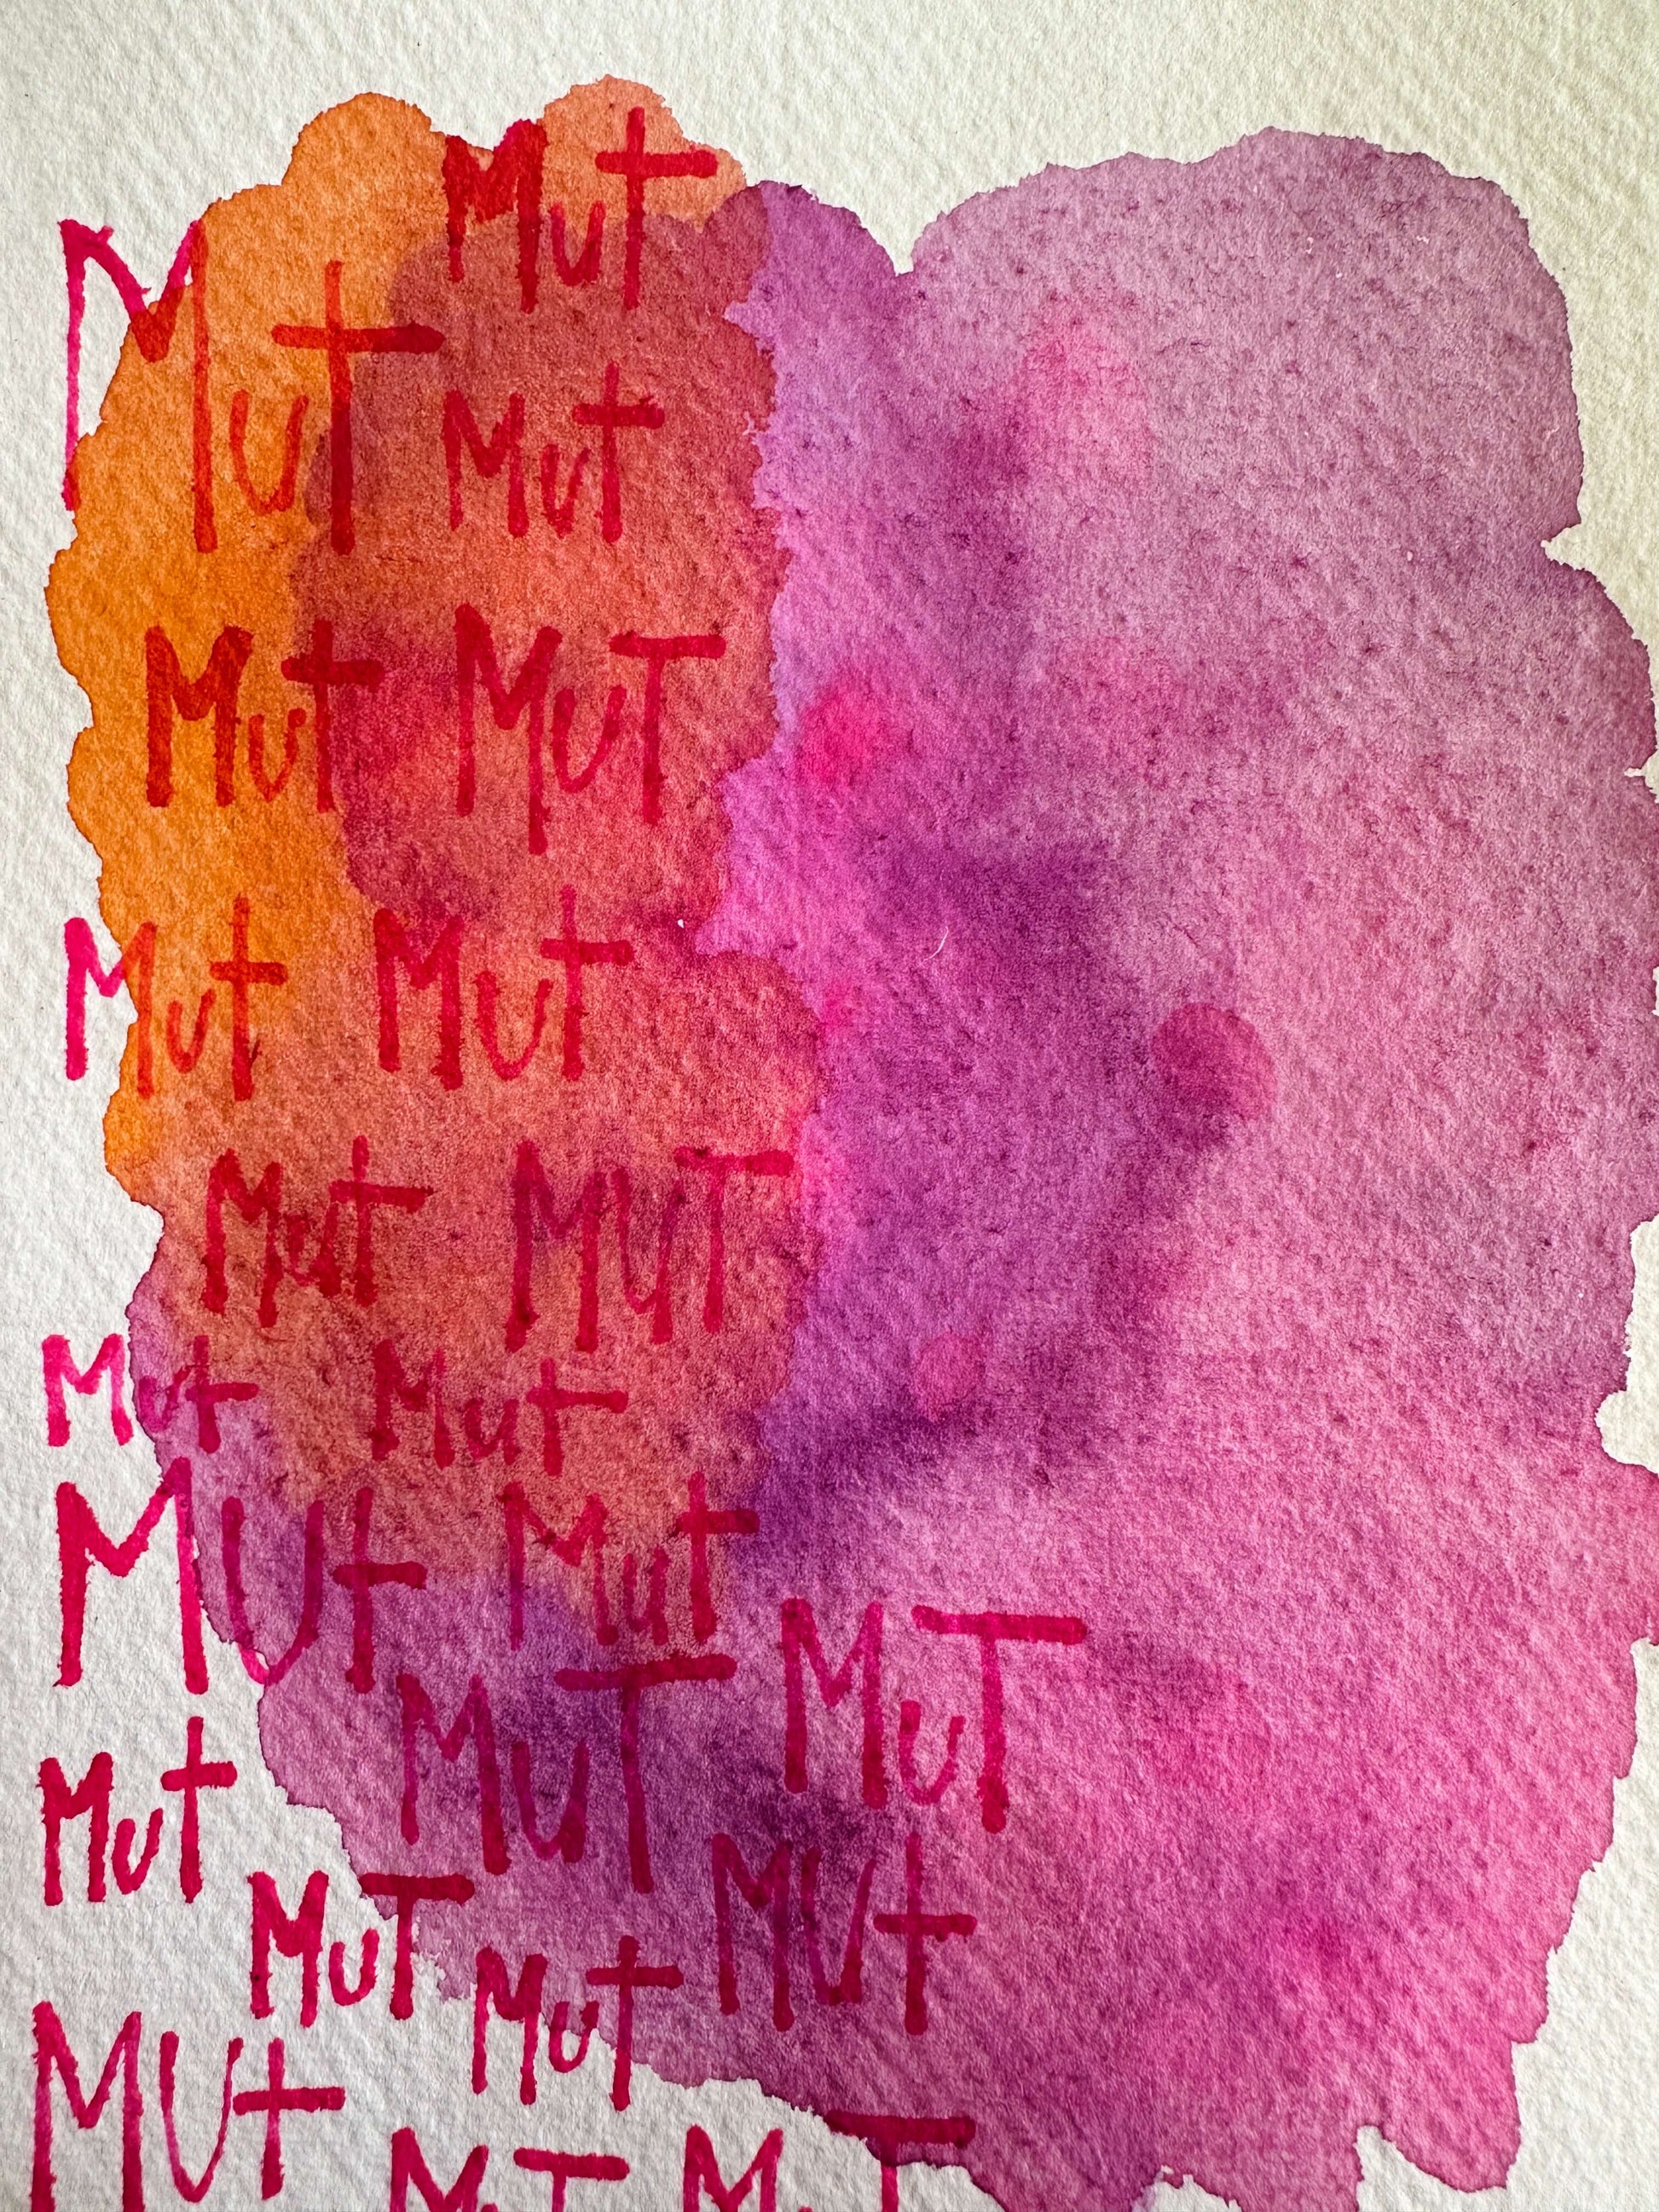 Mut
Mut Mut
Mut MuT
Mut Mut
Mut MUT
Mut Mut
MUt Mut
MuT MuT
Mut
MuT Mut MUt
MUt
MuT MuT